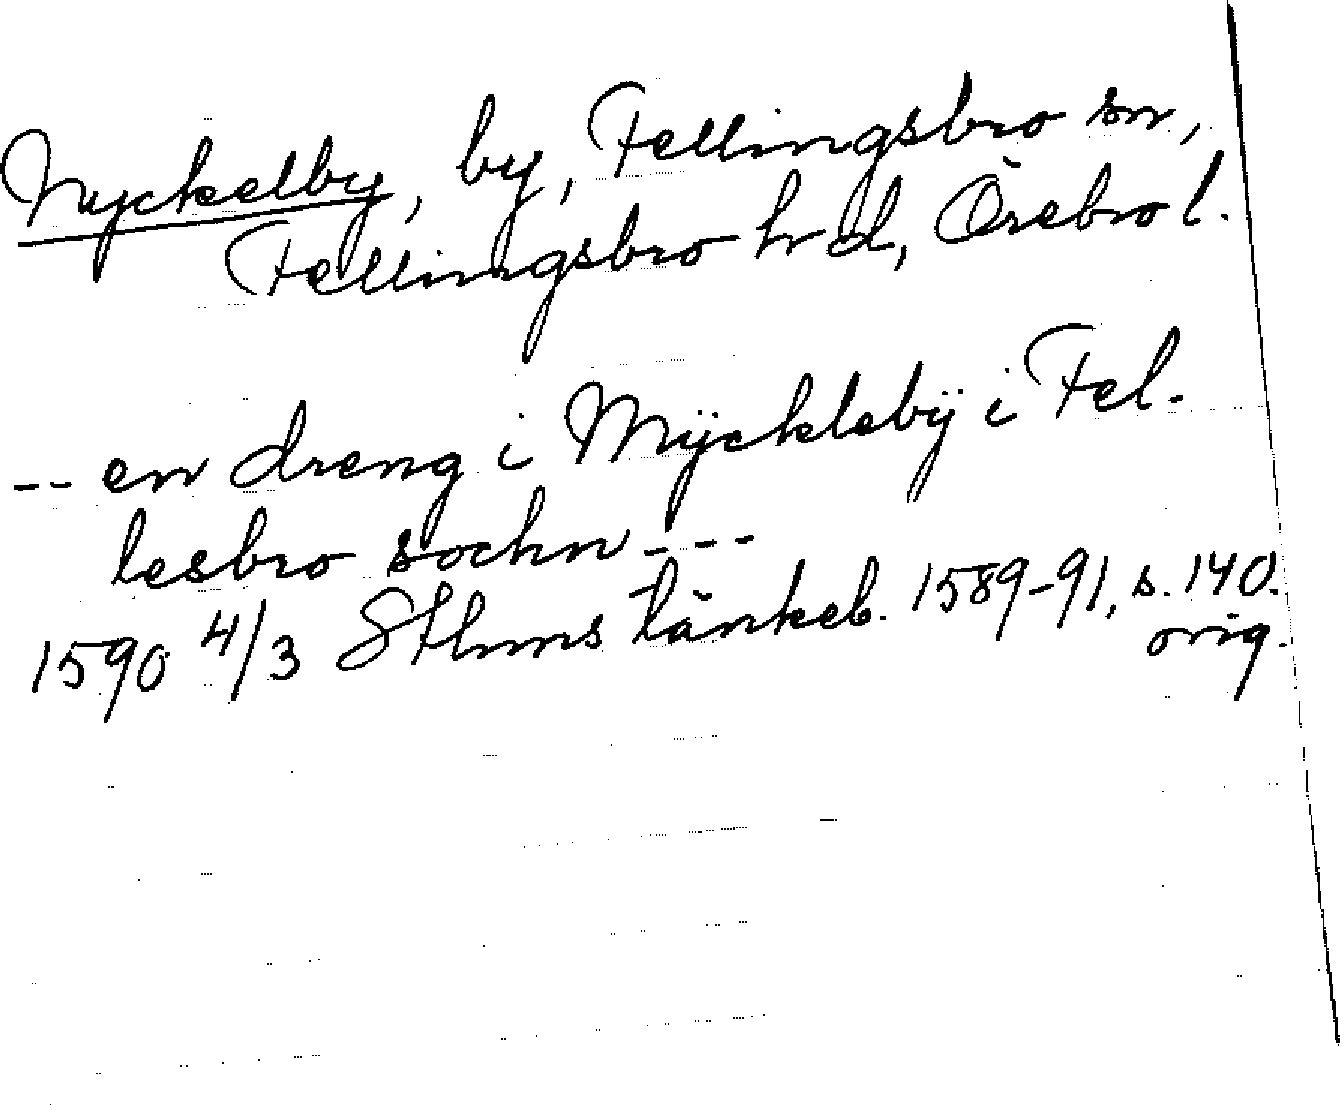 Myckelby, by, Fellingsbro sn,
Fellingsbro hrd, Örebro l.
-- en dreng i Mÿcklebÿ i Fel-
lesbro sochn ---
1590 4/3 Sthms tänkeb. 1589-91, s. 140.
orig.